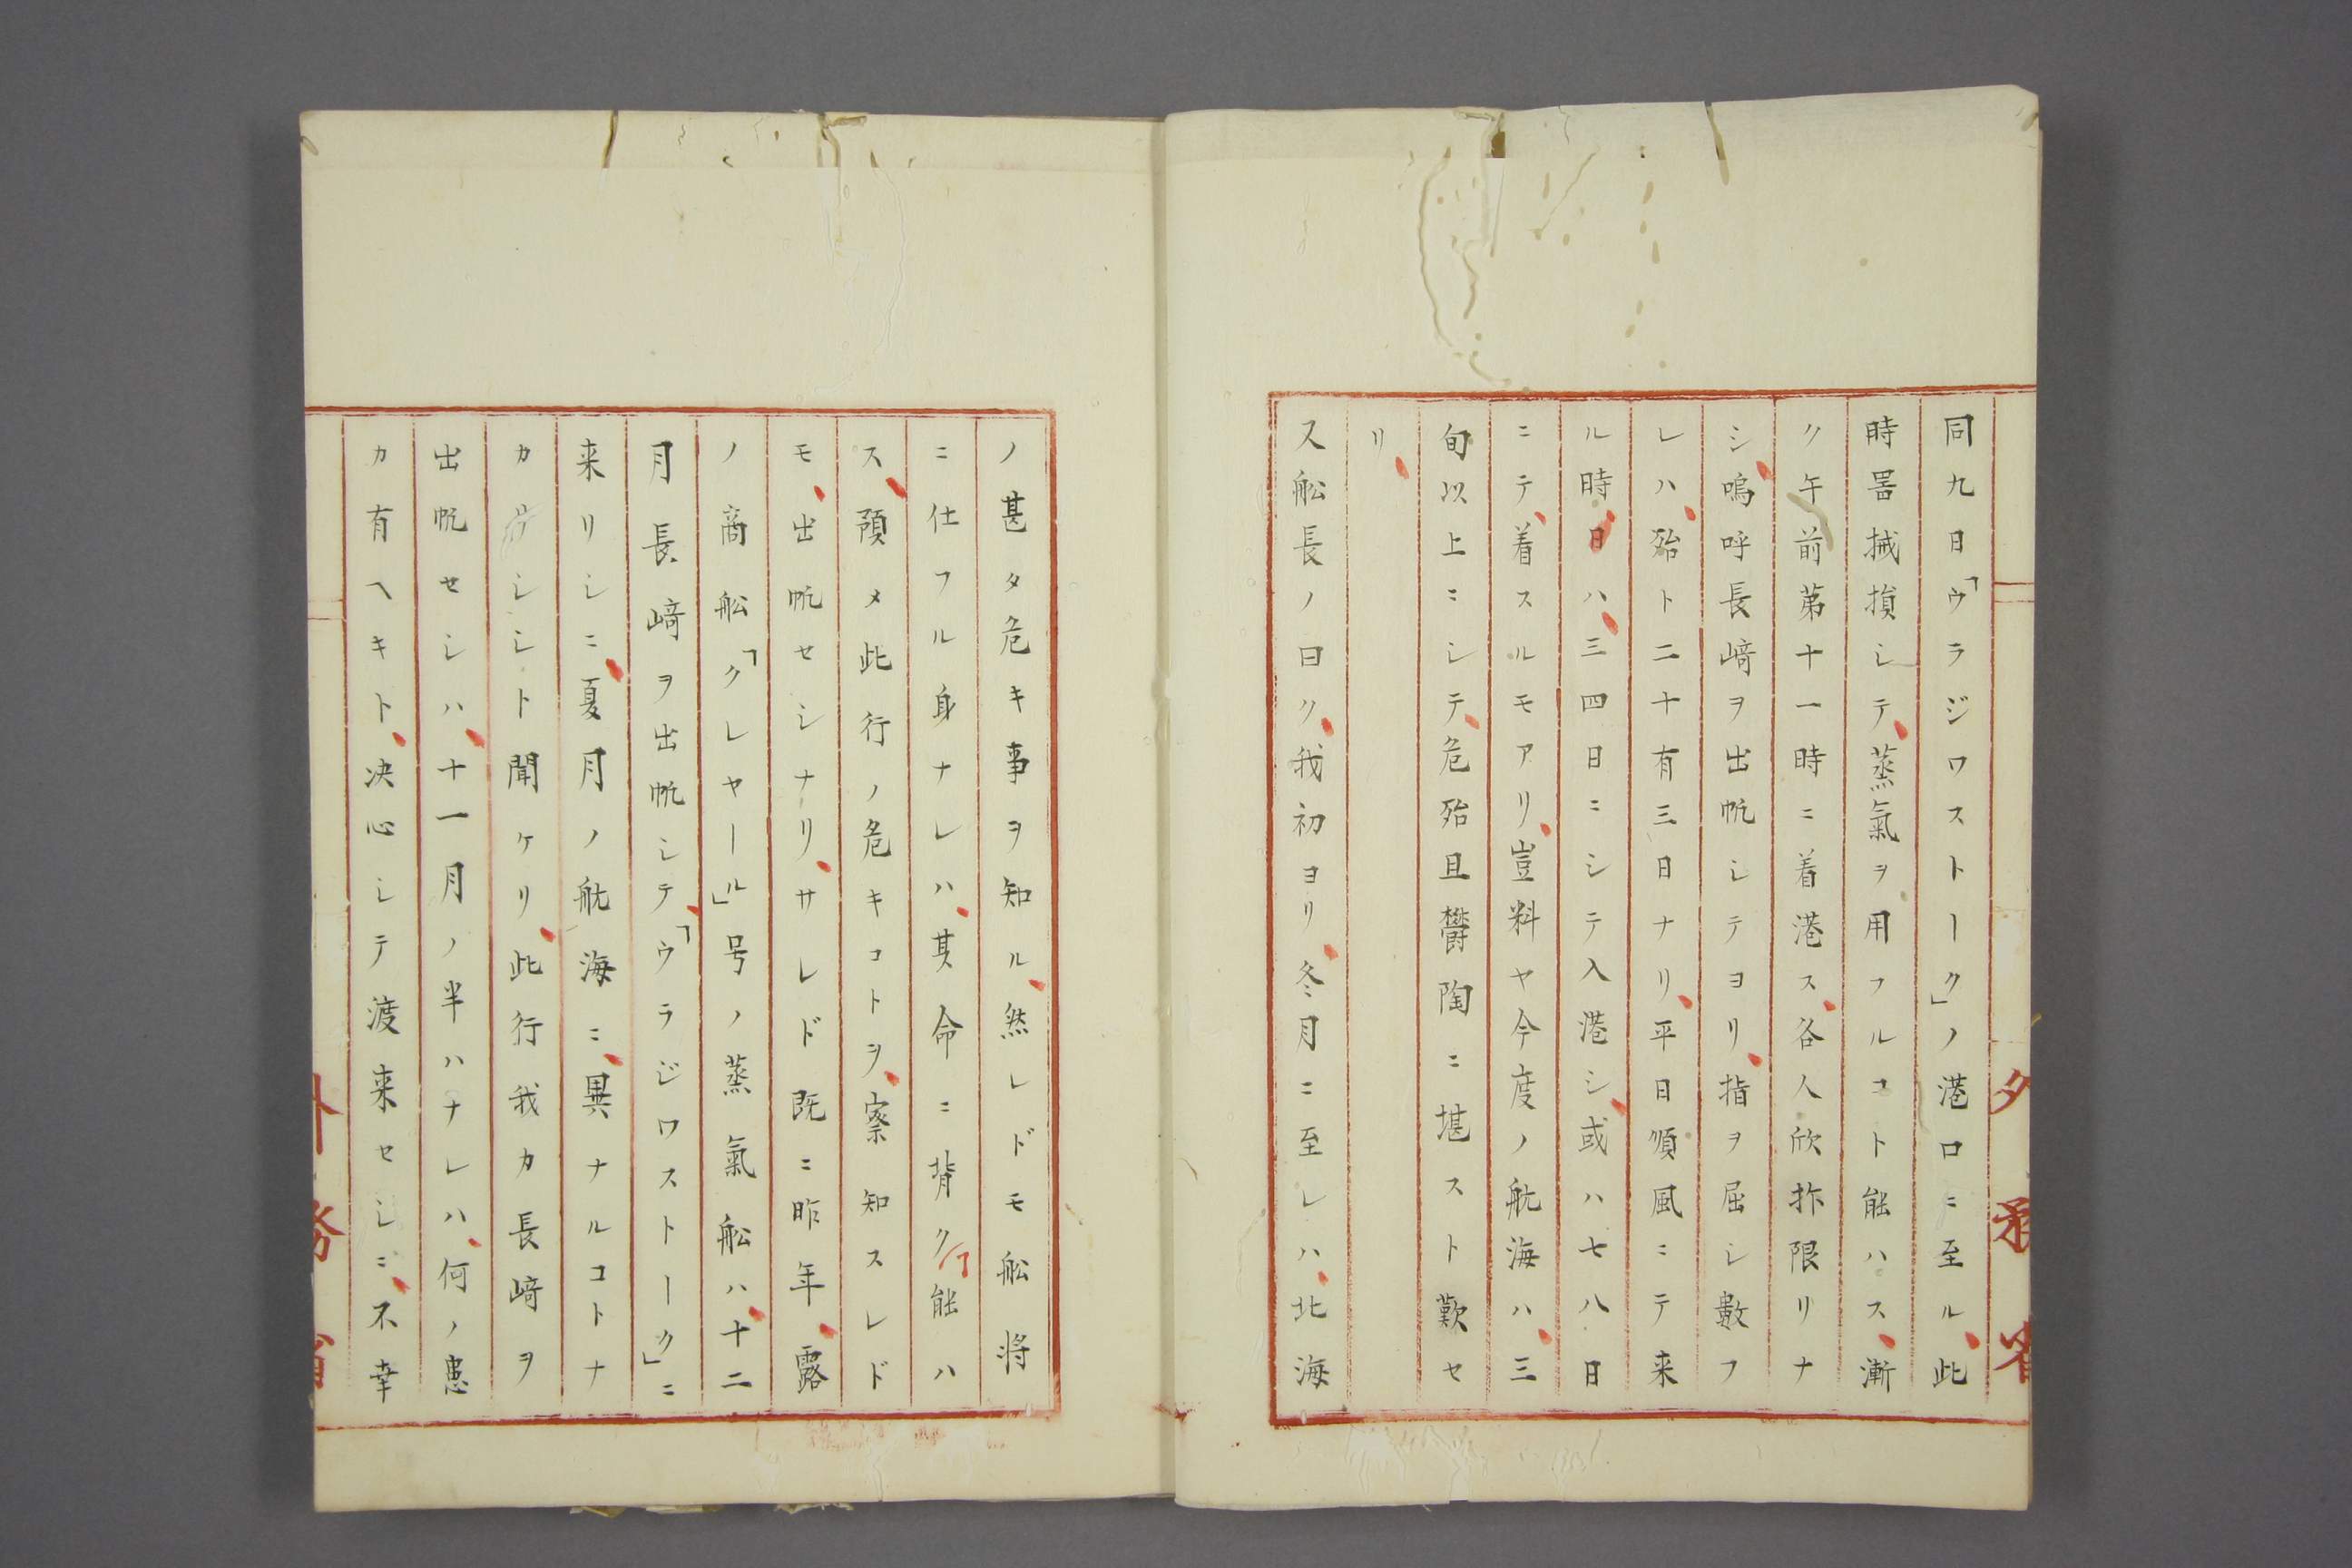 同九日「ウラジワストーク」ノ港口ニ至ル、此
時器械損シテ、蒸氣ヲ用フルコト能ハス、漸
ク午前第十一時ニ着港ス、各人欣抃限リナ
シ、嗚呼長﨑ヲ出帆シテヨリ、指ヲ屈シ數フ
レハ、殆ト二十有三日ナリ、平日順風ニテ来
ル時、日ハ、三四日ニシテ入港シ、或ハ七八日
ニテ、着スルモアリ、豈料ヤ今度ノ航海ハ、三
旬以上ニシテ、危殆且欝陶ニ堪スト歎セ
リ、
ス舩長ノ曰ク、我初ヨリ、冬月ニ至レハ、北海
ノ甚タ危キ事ヲ知ル、然レドモ舩将
ニ仕フル身ナレハ、其命ニ背クヿ能ハ
ス、預メ此行ノ危キコトヲ、察知スレド
モ、出帆セシナリ、サレド既ニ昨年、露
ノ商舩「クレヤール」号ノ蒸氣舩ハ、十二
月長﨑ヲ出帆シテ、「ウラジワストーク」ニ
来リシニ、夏月ノ航海ニ、異ナルコトナ
カリシシト聞ケリ、此行我カ長﨑ヲ
出帆セシハ、十一月ノ半ハナレハ、何ノ患
カ有ヘキト、決心シテ渡来セシニ、不幸
外務省